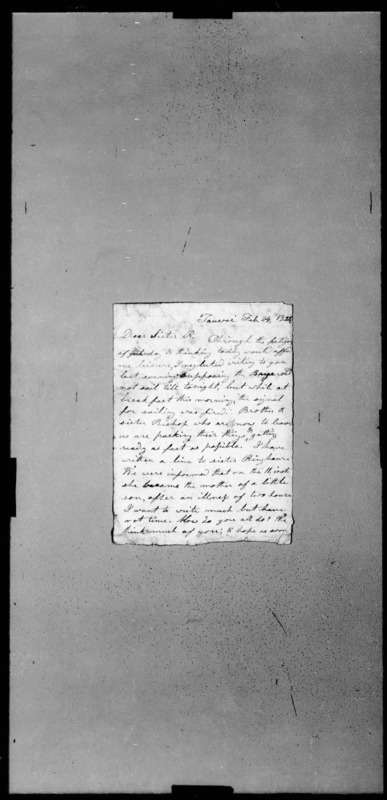 Tauwoi Feb. 24, 18
Dear Sister R. Through the fatigue
of & thinking today would offer
me leisure, I neglected writing to you
last evening supposing the Barge would
not sail till tonight, but while at
breakfast this morning the signal
for sailing was fired. Brother &
sister Bishop who are now to leave
us are packing their things & getting
ready as fast as possible. I have
written a line to sister Bingham.
We were informed that on the 11 inst
she became the mother of a little
son, after an illness of two hours
I want to write much but have
not time. How do you all do? We
think much of you; & hope as soon